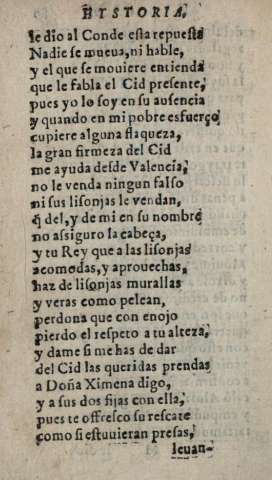 HYSTORIA,
le dio al Conde esta repuesta
Nadie se mueua, ni hable,
y el que se mouiere entienda
que le fabla el Cid presente,
pues yo lo soy en su ausencia
y quando en mi pobre esfuerço
cupiere alguna flaqueza,
la gran firmeza del Cid
me ayuda desde Valencia,
no le venda ningun falso
ni sus lisonjas le vendan,
q̃ del, y de mi en su nombre
no assiguro la cabeça,
y tu Rey que a las lisonjas
acomodas, y aprouechas,
haz de lisonjas murallas
y veras como pelean,
perdona que con enojo
pierdo el respeto a tu alteza,
y dame si me has de dar
del Cid las queridas prendas
a Doña Ximena digo,
y a sus dos fijas con ella,
pues te offresco su rescate
como si estuuieran presas,
leuan-